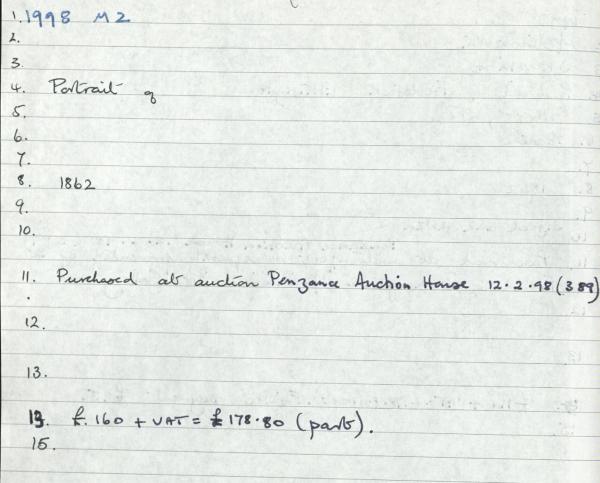 1. 1998 M2
2.
3.
4. Portrait of
5.
6.
7.
8. 1862
9.
10.
11. Purchased at auction Penzance Auction House 12.2.98 (389)
12.
13.
13. £.160 + VAT = £178.80 (part).
15.